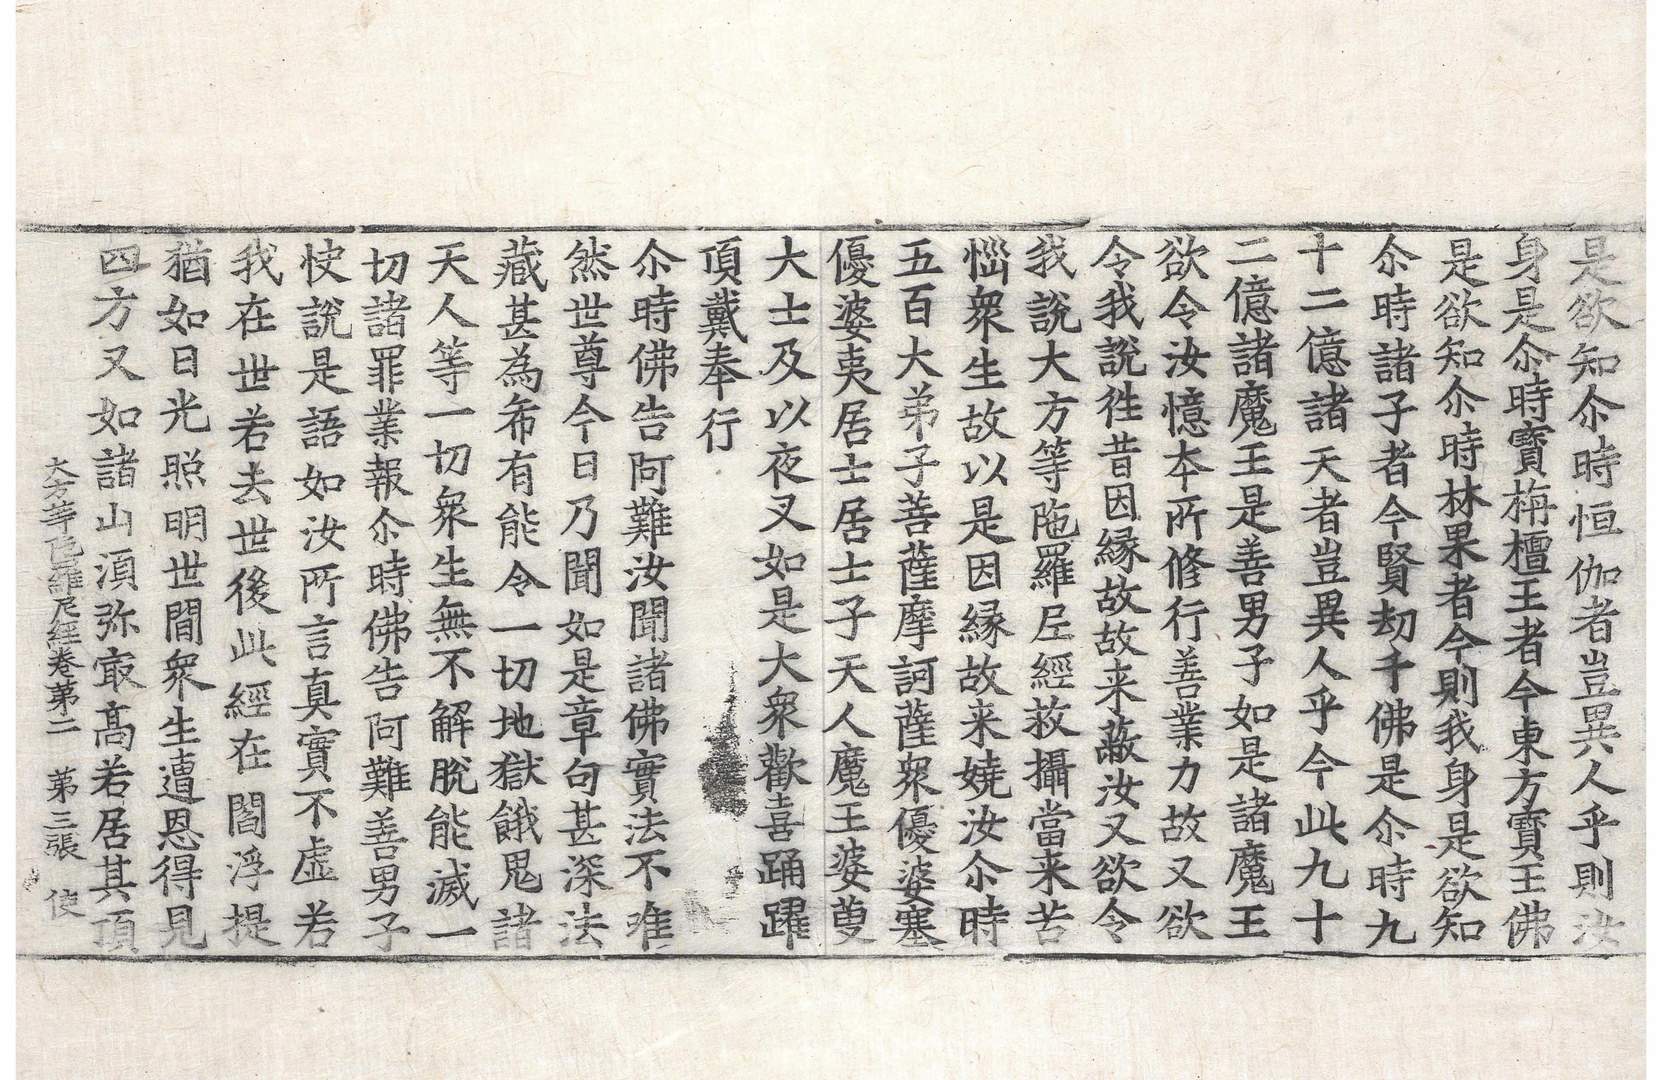 是欲知尒時恒伽者豈異人乎則汝
身是尒時寶栴檀王者今東方寶王佛
是欲知尒時林果者今則我身是欲知
尒時諸子者今賢劫千佛是尒時九
十二億諸天者豈異人乎今此九十
二億諸魔王是善男子如是諸魔王
欲令汝憶本所修行善業力故又欲
令我說往昔因縁故故来蔽汝又欲令
我說大方等陁羅尼經救攝當来苦
惱衆生故以是因縁故来嬈汝尒時
五百大弟子菩薩摩訶薩衆優婆塞
優婆夷居士居士子天人魔王婆䕫
大士及以夜叉如是大衆歡喜踊躍
頂戴奉行
尒時佛告阿難汝聞諸佛實法不唯
然世尊今日乃聞如是章句甚深法
藏甚為希有能令一切地獄餓鬼諸
天人等一切衆生無不解脫能滅一
切諸罪業報尒時佛告阿難善男子
快說是語如汝所言真實不虛若
我在世若去世後此經在閻浮提
猶如日光照明世間衆生遭恩得見
四方又如諸山湏弥㝡髙若居其頂
大方等陁羅尼經卷第二 第三張 使